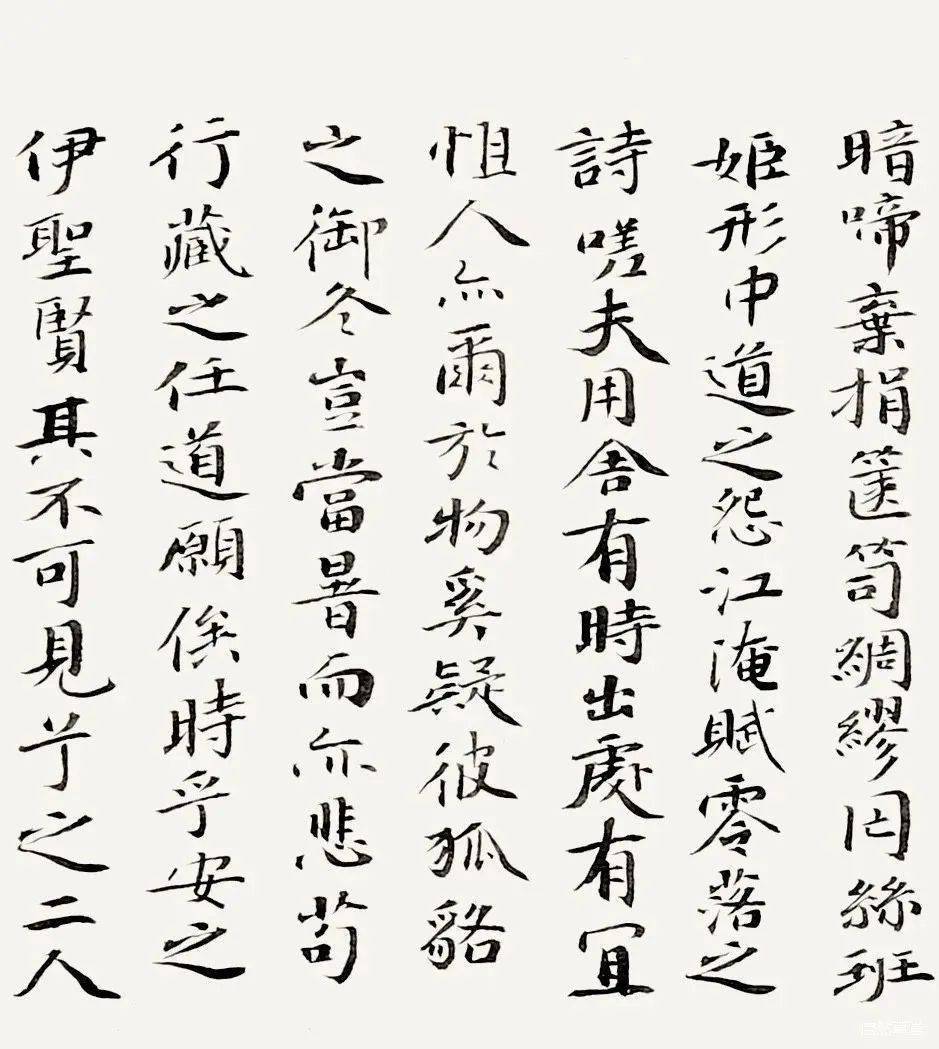 暗啼棄捐篋笥綢繆罔絲班
姬形中道之怨江淹賦零落之
詩嗟夫用舍有時出處有宜
怛人亦爾於物奚疑彼狐貉
之御冬豈當暑而亦悲苟
行藏之任道願俟時乎安之
伊聖賢其不可見兮之二人